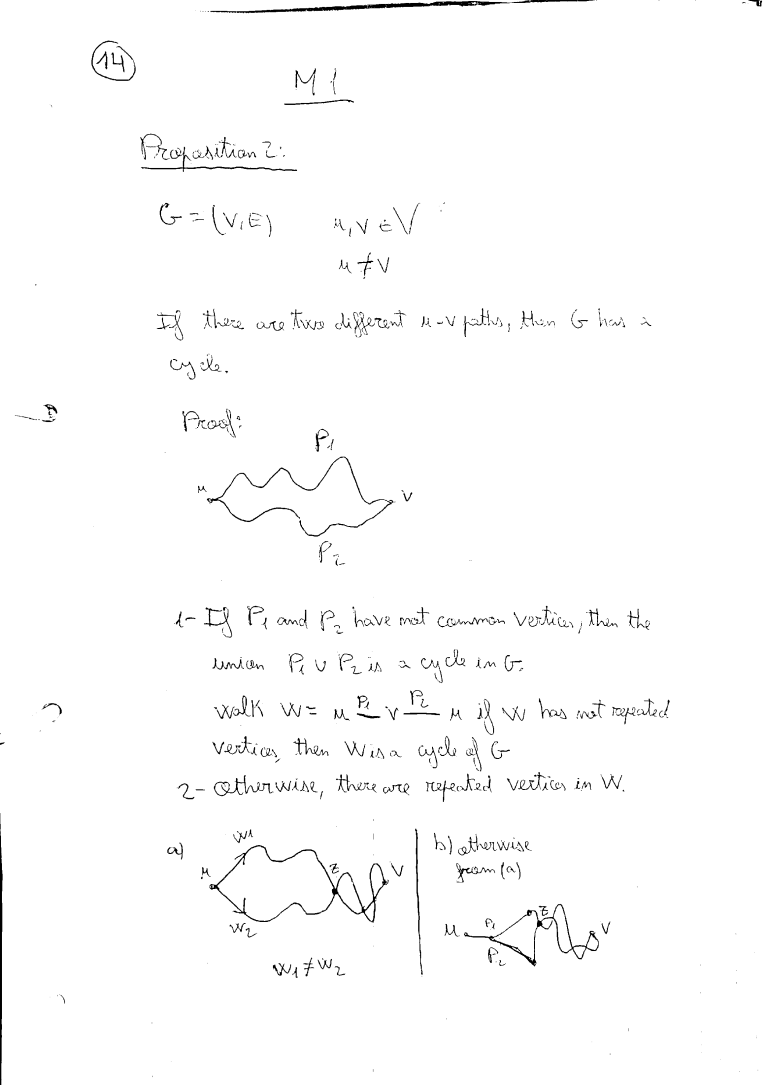 14
M1
Proposition 2:
G = (V, E) u, v ∈ V
u ≠ v
If there are two different u-v paths, then G has a
cycle.
Proof:
P1
u v
P2
1- If P1 and P2 have not common vertices, then the
union P1 ∪ P2 is a cycle in G.
Walk W = u P1 v P2 u if W has not repeated
vertices, then W is a cycle of G
2- Otherwise, there are repeated vertices in W.
a) W1 u z v W2
W1 ≠ W2
b) otherwise
from (a)
u P1 z v
P2